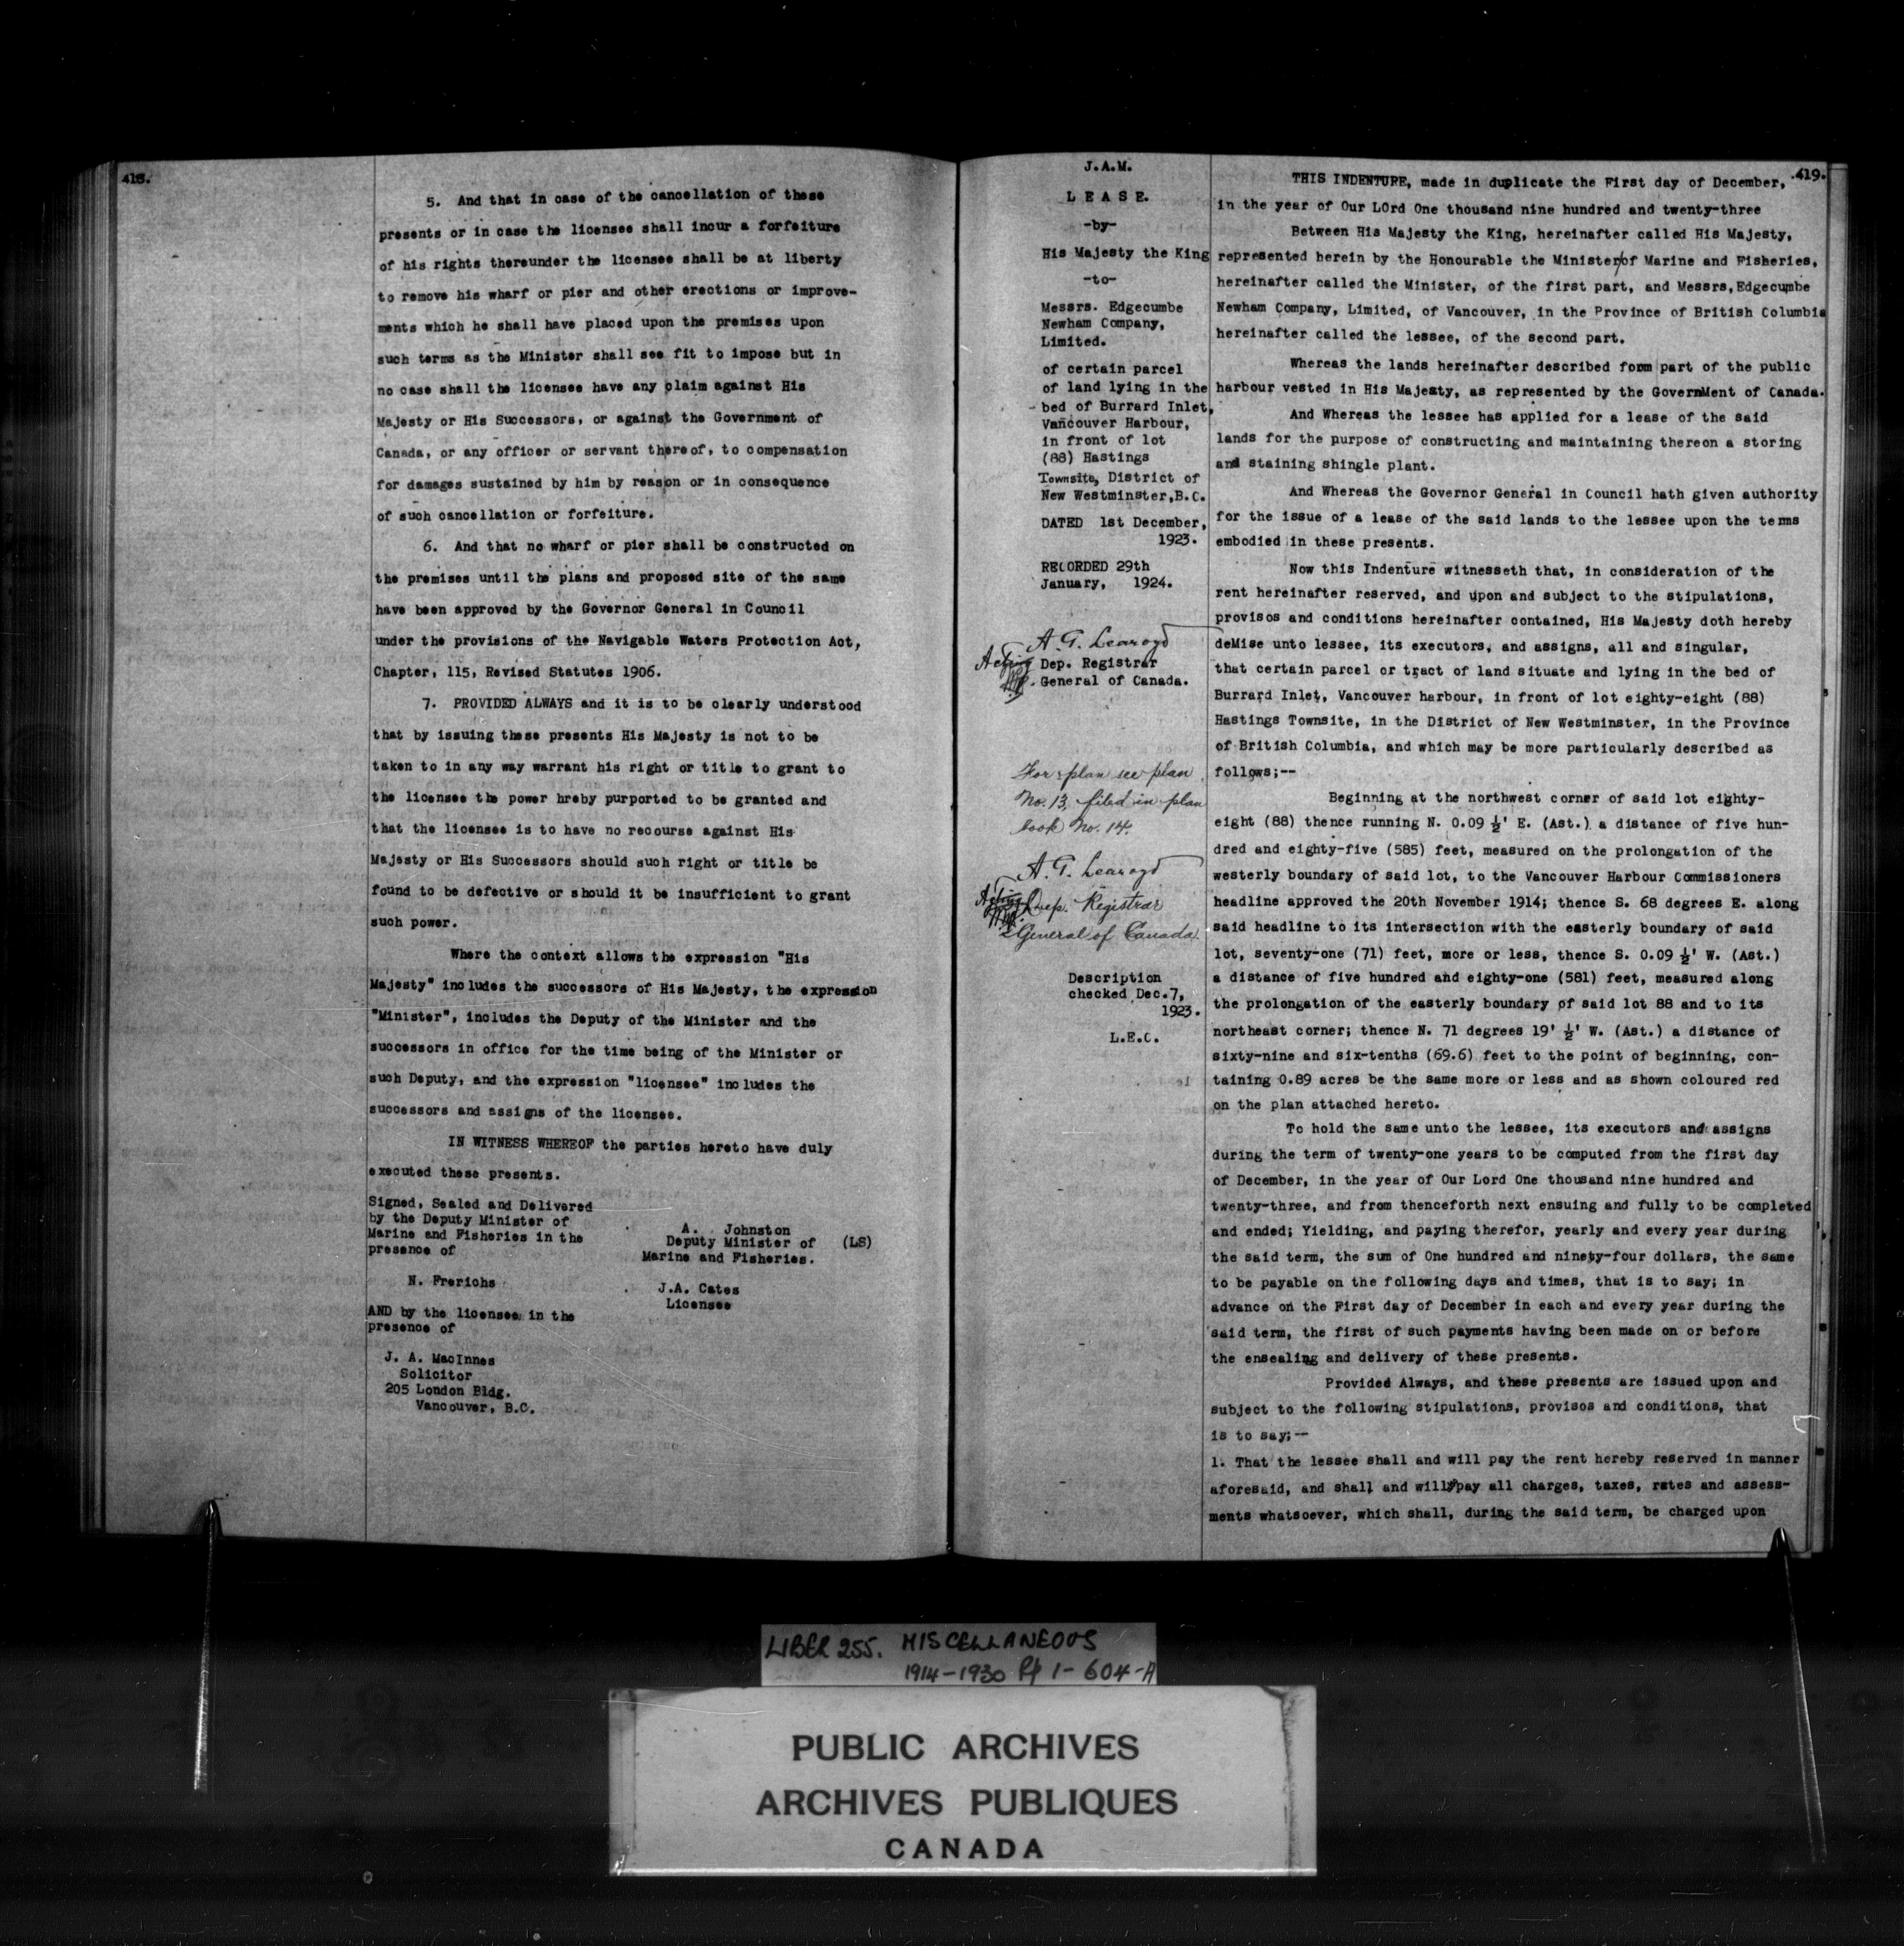 418.
5. And that in case of the cancellation of these
presents or in case the licensee shall incur a forfeiture
of his rights thereunder the licensee shall be at liberty
to remove his wharf or pier and other erections or improve-
ments which he shall have placed upon the premises upon
such terms as the Minister shall see fit to impose but in
no case shall the licensee have any claim against His
Majesty or His Successors, or against the Government of
Canada, or any officer or servant thereof, to compensation
for damages sustained by him by reason or in consequence
of such cancellation or forfeiture.
6. And that no wharf or pier shall be constructed on
the premises until the plans and proposed site of the same
have been approved by the Governor General in Council
under the provisions of the Navigable Waters Protection Act,
Chapter, 115, Revised Statutes 1906.
7. PROVIDED ALWAYS and it is to be clearly understood
that by issuing these presents His Majesty is not to be
taken to in any way warrant his right or title to grant to
the licensee the power hreby purported to be granted and
that the licensee is to have no recourse against His
Majesty or His Successors should such right or title be
found to be defective or should it be insufficient to grant
such power.
Where the context allows the expression "His
Majesty" includes the successors of His Majesty, the expression
"Minister", includes the Deputy of the Minister and the
successors in office for the time being of the Minister or
such Deputy, and the expression "licensee" includes the
successors and assigns of the licensee.
IN WITNESS WHEREOF the parties hereto have duly
executed these presents.
Signed, Sealed and Delivered
by the Deputy Minister of
Marine and Fisheries in the
presence of
A. Johnston
Deputy Minister of (LS)
Marine and Fisheries.
N. Frerichs
J.A. Cates
Licensee
AND by the licensee in the
presence of
J. A. MacInnes
Solicitor
205 London Bldg.
Vancouver, B.C.
J.A.M.
L E A S E.
-by-
His Majesty the King
-to-
Messrs. Edgecumbe
Newham Company,
Limited.
of certain parcel
of land lying in the
bed of Burrard Inlet,
Vancouver Harbour,
in front of lot
(88) Hastings
Townsite, District of
New Westminster,B.C.
DATED 1st December,
1923.
RECORDED 29th
January, 1924.
A. G. Learoyd
Acting Dep. Registrar
General of Canada.
For plan see plan
No. 13 filed in plan
book No. 14.
A. G. Learoyd
Acting Dep. Registrar
General of Canada.
Description
checked Dec.7,
1923.
L.E.C.
419.
THIS INDENTURE, made in duplicate the First day of December,
in the year of Our LOrd One thousand nine hundred and twenty-three
Between His Majesty the King, hereinafter called His Majesty,
represented herein by the Honourable the Minister/of Marine and Fisheries,
hereinafter called the Minister, of the first part, and Messrs,Edgecumbe
Newham Company, Limited, of Vancouver, in the Province of British Columbia
hereinafter called the lessee, of the second part.
Whereas the lands hereinafter described form part of the public
harbour vested in His Majesty, as represented by the GovernMent of Canada.
And Whereas the lessee has applied for a lease of the said
lands for the purpose of constructing and maintaining thereon a storing
and staining shingle plant.
And Whereas the Governor General in Council hath given authority
for the issue of a lease of the said lands to the lessee upon the terms
embodied in these presents.
Now this Indenture witnesseth that, in consideration of the
rent hereinafter reserved, and upon and subject to the stipulations,
provisos and conditions hereinafter contained, His Majesty doth hereby
deMise unto lessee, its executors, and assigns, all and singular,
that certain parcel or tract of land situate and lying in the bed of
Burrard Inlet, Vancouver harbour, in front of lot eighty-eight (88)
Hastings Townsite, in the District of New Westminster, in the Province
of British Columbia, and which may be more particularly described as
follows;--
Beginning at the northwest corner of said lot eighty-
eight (88) thence running N. 0.09 ½' E. (Ast.) a distance of five hun-
dred and eighty-five (585) feet, measured on the prolongation of the
westerly boundary of said lot, to the Vancouver Harbour Commissioners
headline approved the 20th November 1914; thence S. 68 degrees E. along
said headline to its intersection with the easterly boundary of said
lot, seventy-one (71) feet, more or less, thence S. 0.09 ½' W. (Ast.)
a distance of five hundred and eighty-one (581) feet, measured along
the prolongation of the easterly boundary of said lot 88 and to its
northeast corner; thence N. 71 degrees 19' ½' W. (Ast.) a distance of
sixty-nine and six-tenths (69.6) feet to the point of beginning, con-
taining 0.89 acres be the same more or less and as shown coloured red
on the plan attached hereto.
To hold the same unto the lessee, its executors and assigns
during the term of twenty-one years to be computed from the first day
of December, in the year of Our Lord One thousand nine hundred and
twenty-three, and from thenceforth next ensuing and fully to be completed
and ended; Yielding, and paying therefor, yearly and every year during
the said term, the sum of One hundred and ninety-four dollars, the same
to be payable on the following days and times, that is to say; in
advance on the First day of December in each and every year during the
said term, the first of such payments having been made on or before
the ensealing and delivery of these presents.
Provided Always, and these presents are issued upon and
subject to the following stipulations, provisos and conditions, that
is to say;--
1. That the lessee shall and will pay the rent hereby reserved in manner
aforesaid, and shall and will pay all charges, taxes, rates and assess-
ments whatsoever, which shall, during the said term, be charged upon
LIBER 255. MISCELLANEOUS
1914-1930 Pt 1-604-A
PUBLIC ARCHIVES
ARCHIVES PUBLIQUES
CANADA